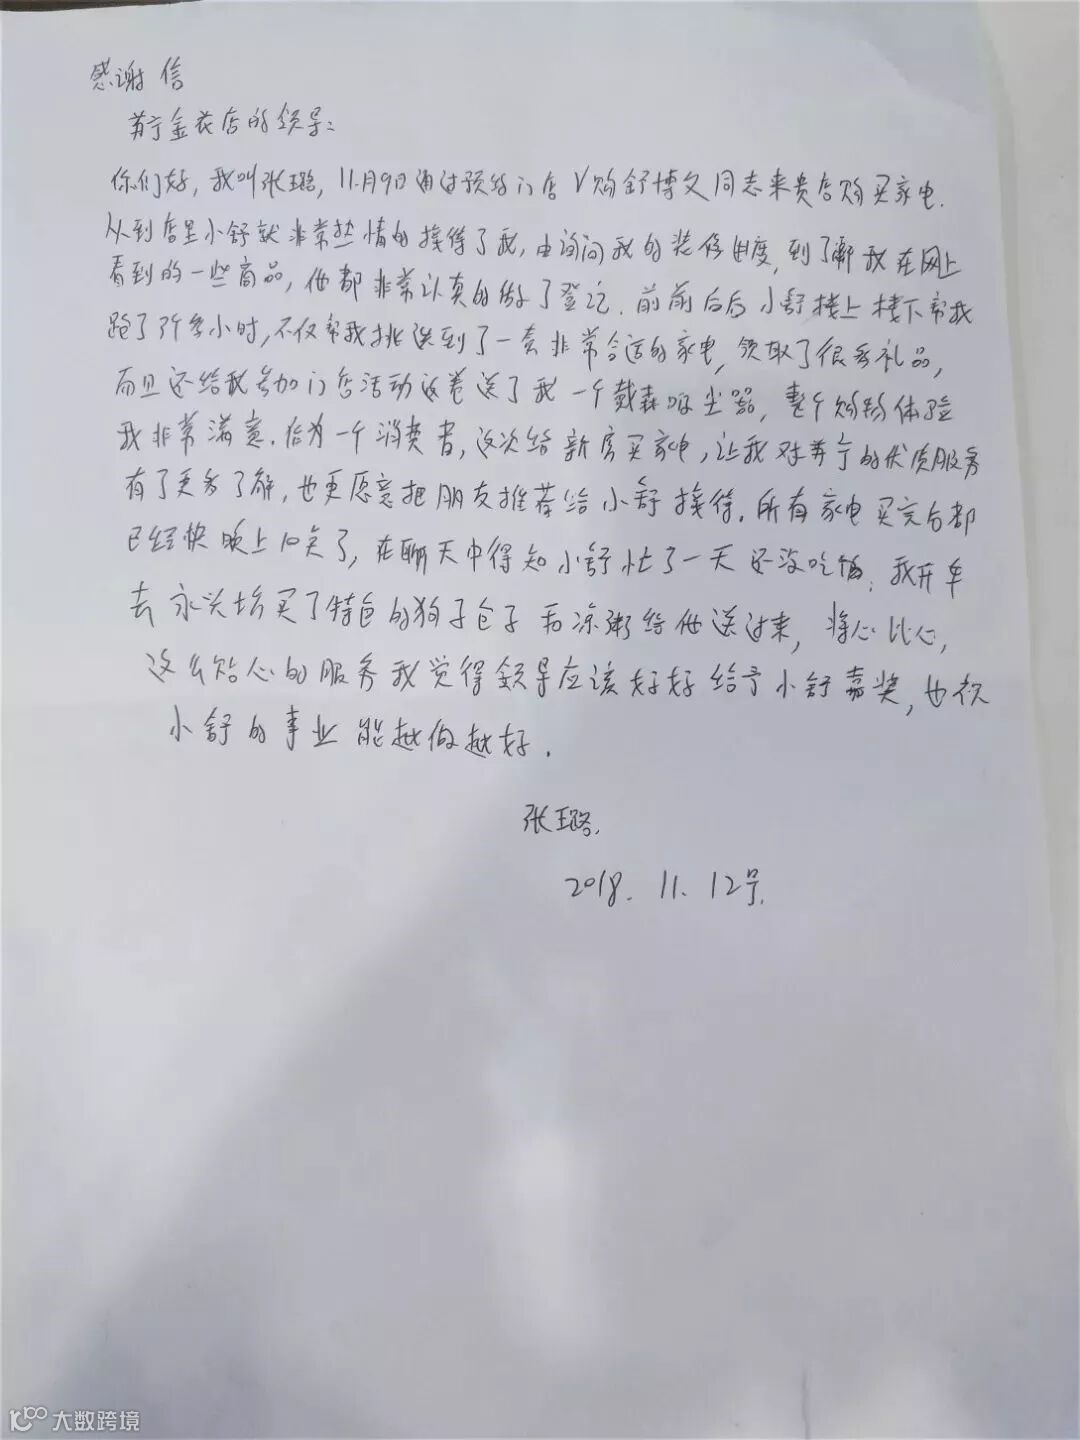 感谢信
苏宁金花店的领导：
你们好，我叫张璐，11月9日通过预约门店V购舒博文同志来贵店购买家电.
从到店里小舒就非常热情的接待了我，由询问我的装修进度，到了解我在网上
看到的一些商品，他都非常认真的做了登记.前前后后小舒楼上楼下帮我
跑了3个多小时，不仅帮我挑选到了一套非常合适的家电，领取了很多礼品，
而且还给我参加门店活动返卷送了我一个戴森吸尘器，整个购物体验
我非常满意.作为一个消费者，这次给新房买家电，让我对苏宁的优质服务
有了更多了解，也更愿意把朋友推荐给小舒接待.所有家电买完后都
已经快晚上10点了，在聊天中得知小舒忙了一天还没吃饭，我开车
去永兴坊买了特色的狗子包子和凉粥给他送过来，将心比心，
这么贴心的服务我觉得领导应该好好给予小舒嘉奖，也祝
小舒的事业能越做越好.
张璐.
2018.11.12号.
大数跨境